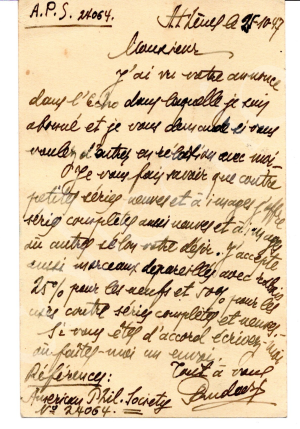 A.P.S. 24064.
Athènes le 25-10-47
Monsieur
J'ai vu votre annonce
dans l'Echo dans laquelle je suis
abonné et je vous demande si vous
voulez d'entrer en relation avec moi.
Je vous fais savoir que contre
petites séries neuves et à images j'offre
séries complètes aussi neuves et à images
ou autres selon votre désir. J'accepte
aussi morceaux dépareillés avec rabais
25% pour les neufs et 50% pour les
usés contre séries complètes et neuves.
Si vous êtes d'accord écrivez-moi
ou faites-moi un envoi.
Tout à vous
Références:
American Phil. Society
No 24064.